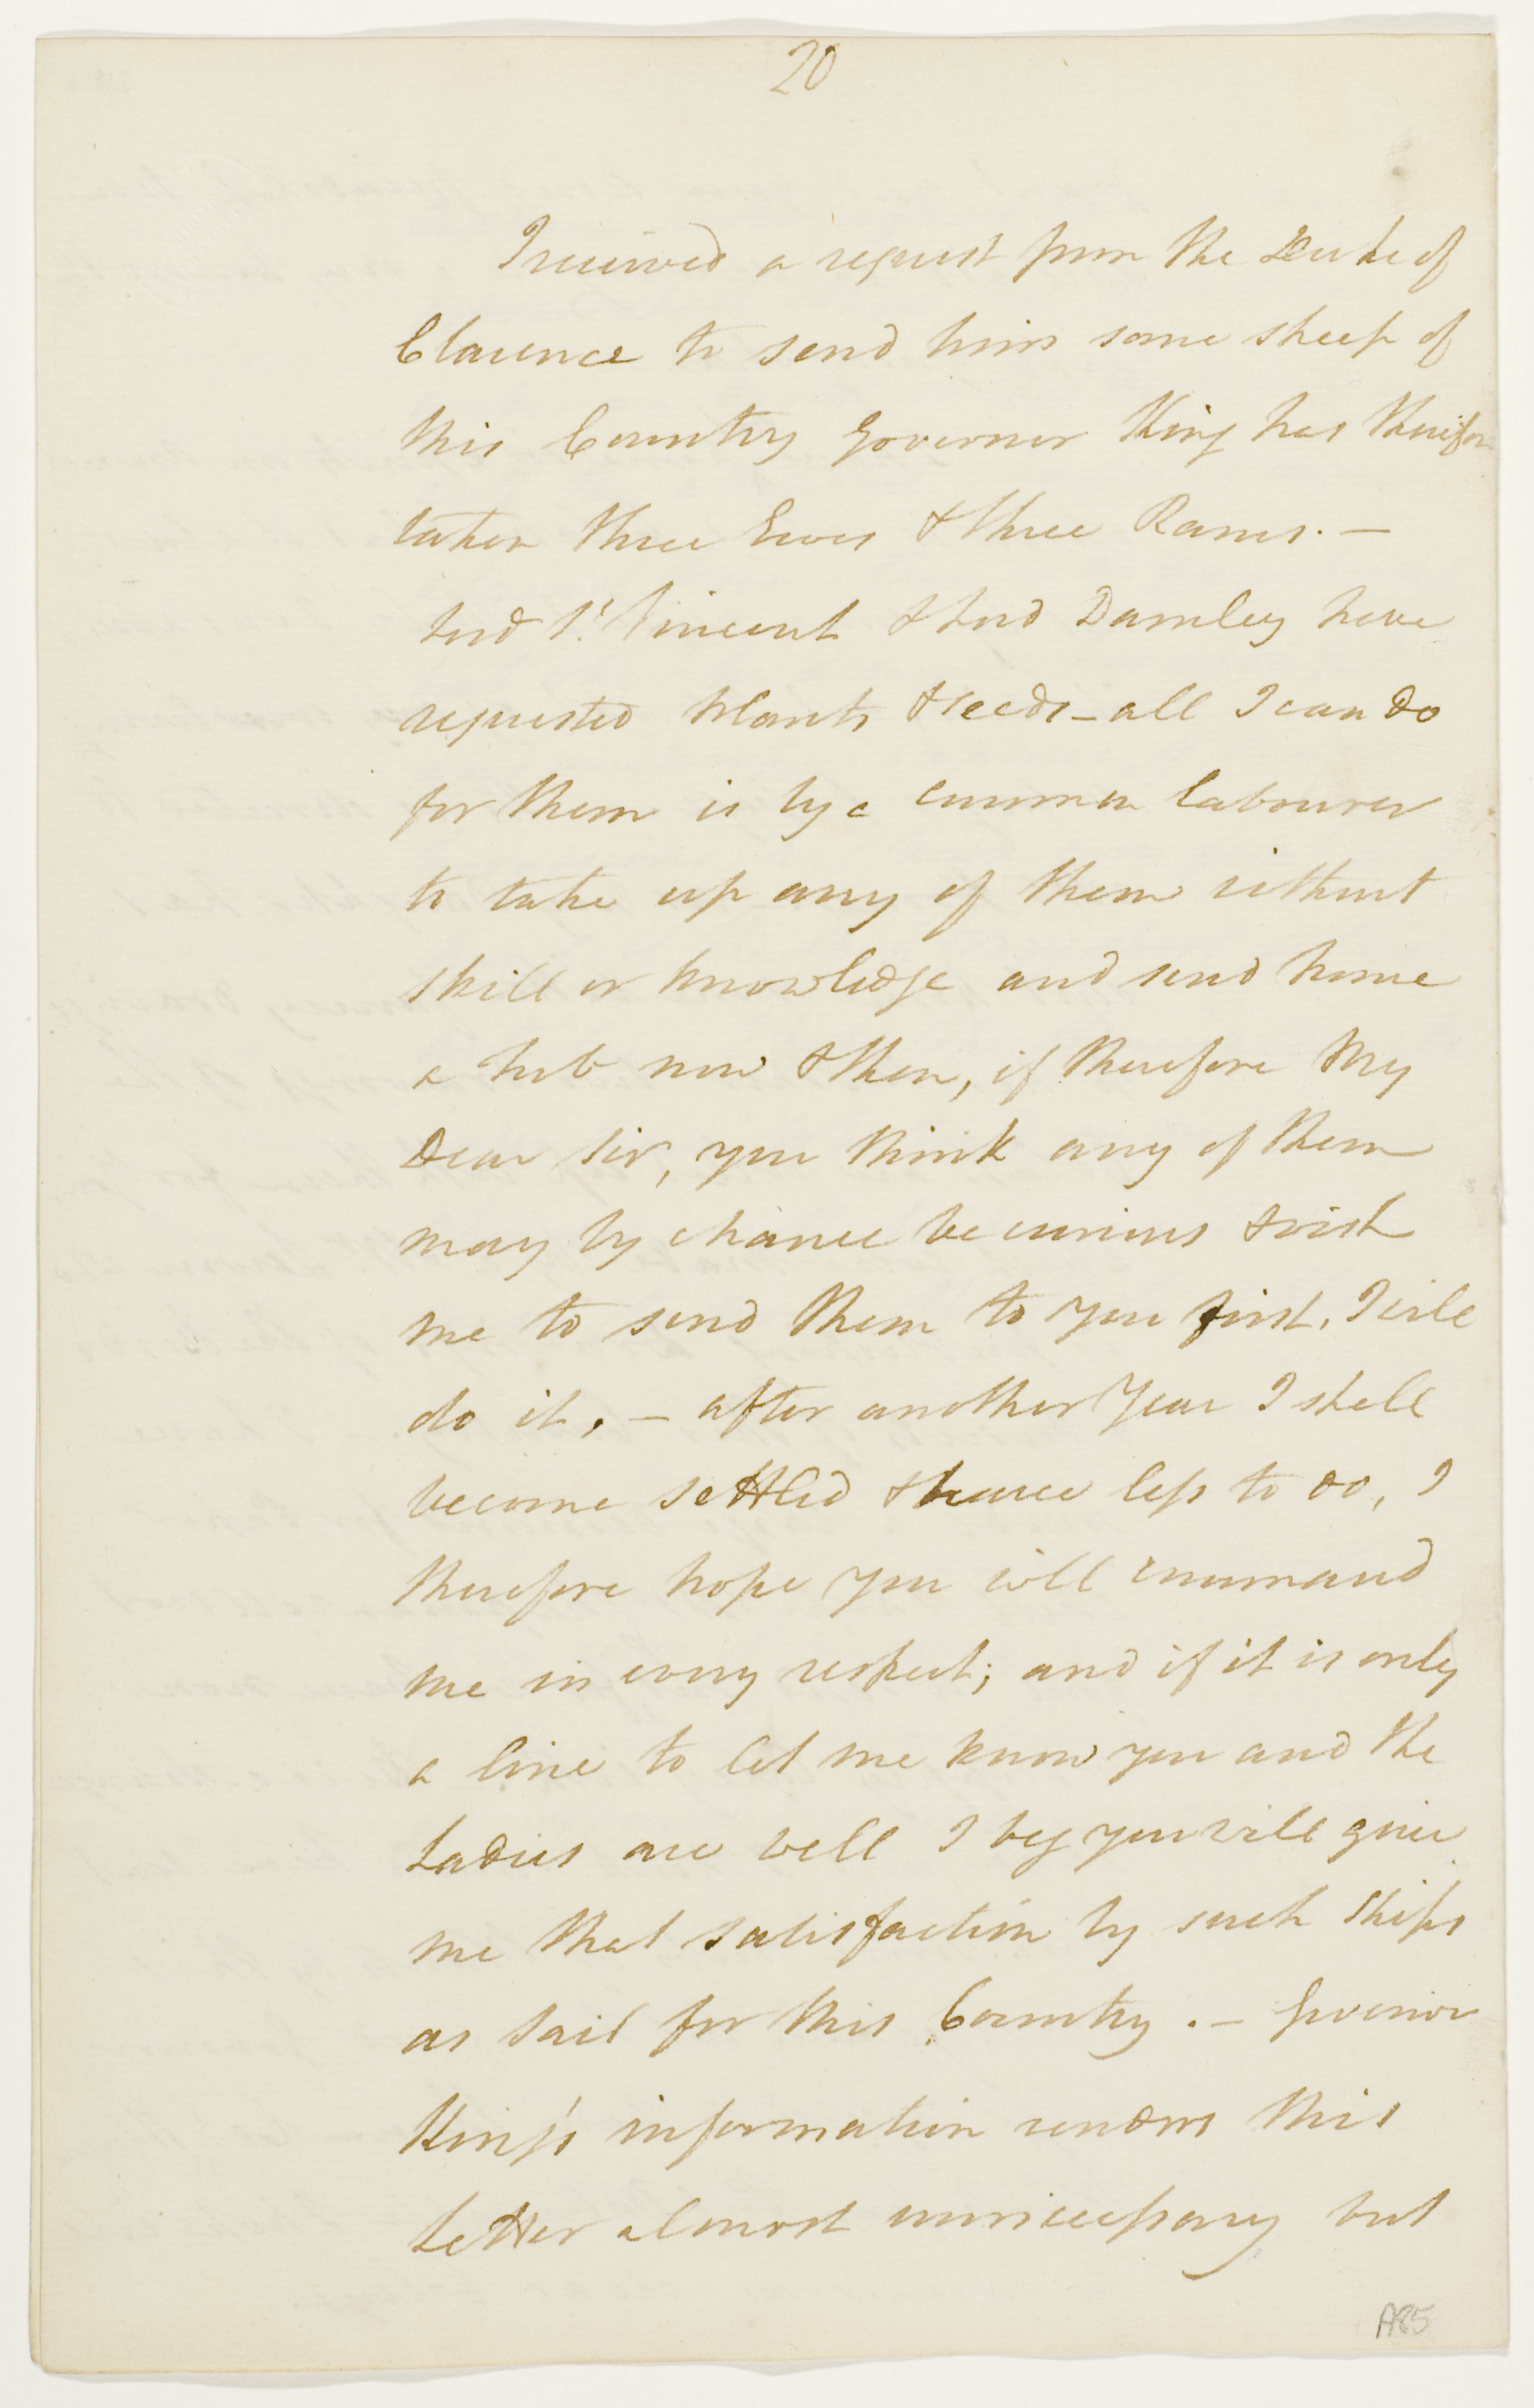 20
I received a request from the Duke of
Clarence to send him some sheep of
this Country Governor King has therefore
taken three Ewes & three Rams. —
Lord St. Vincent & Lord Darnley have
requested Plants & seeds — all I can do
for them is by a common labourer
to take up any of them without
skill or knowledge and send home
a tub now & then, if therefore My
Dear Sir, you think any of them
may by chance be curious & wish
me to send them to you first, I will
do it. — after another Year I shall
become settled & have less to do, I
therefore hope you will command
me in every respect; and if it is only
a line to let me know you and the
Ladies are well I beg you will give
me that satisfaction by such Ships
as sail for this Country. — Governor
King's information renders this
Letter almost unnecessary but
A85